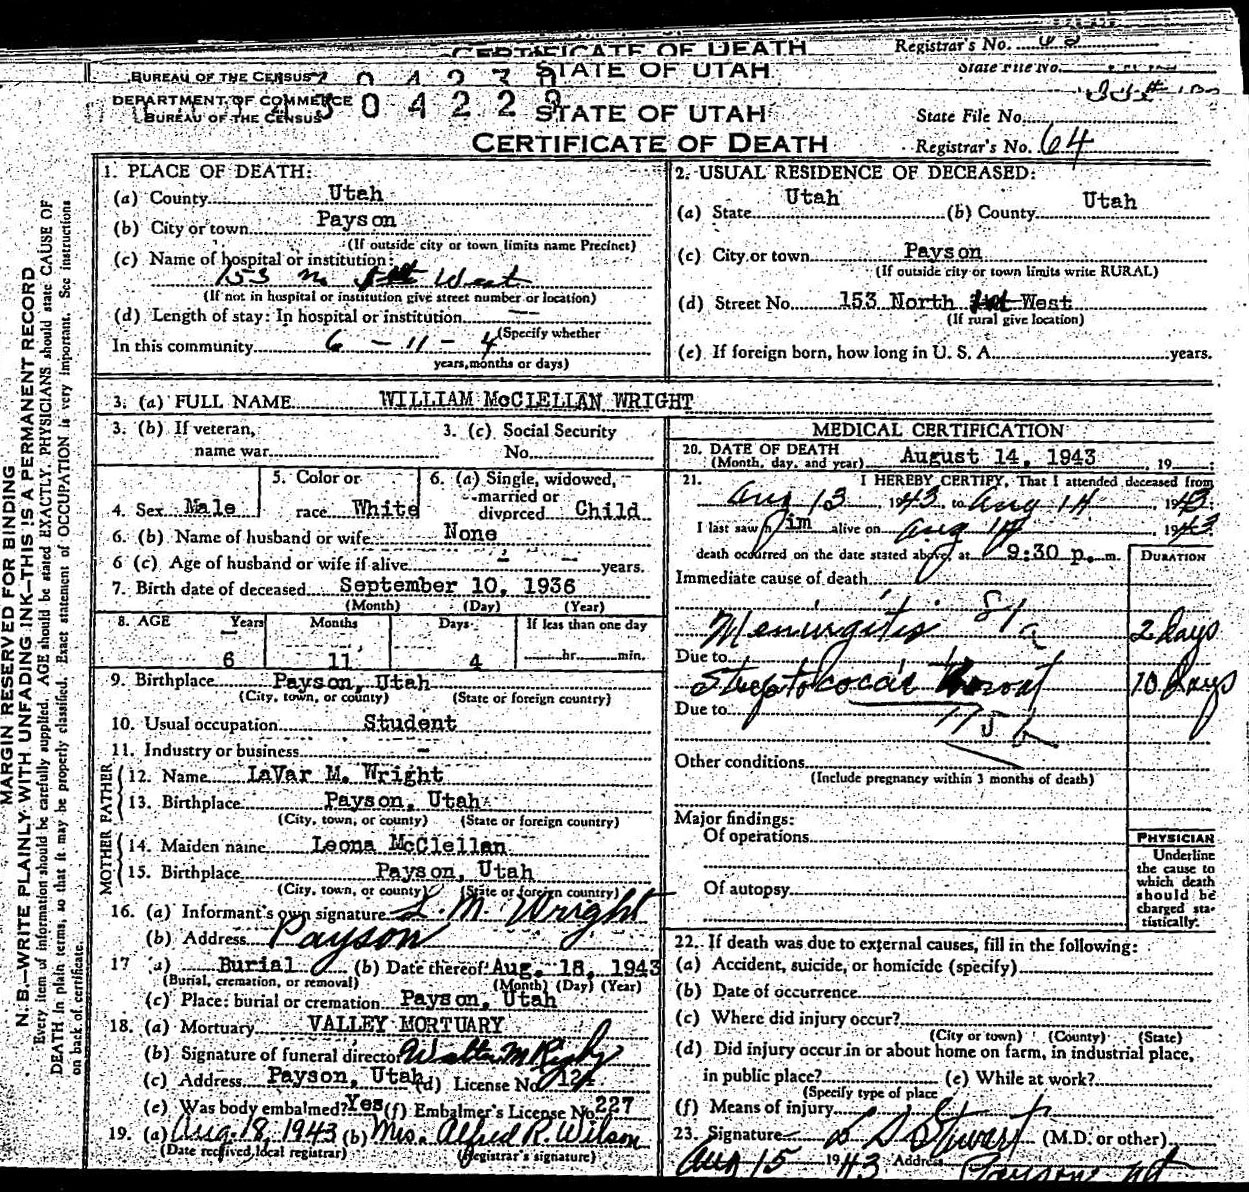 CERTIFICATE OF DEATH
Registrar's No.
BUREAU OF THE CENSUS
STATE OF UTAH
State File No.
DEPARTMENT OF COMMERCE
BUREAU OF THE CENSUS
STATE OF UTAH
State File No.
CERTIFICATE OF DEATH
Registrar's No. 64
MARGIN RESERVED FOR BINDING
N. B.—WRITE PLAINLY WITH UNFADING INK—THIS IS A PERMANENT RECORD
Every item of information should be carefully supplied. AGE should be stated EXACTLY. PHYSICIANS should state CAUSE OF
DEATH in plain terms, so that it may be properly classified. Exact statement of OCCUPATION is very important. See instructions
on back of certificate.
1. PLACE OF DEATH:
(a) County Utah
(b) City or town Payson
(If outside city or town limits name Precinct)
(c) Name of hospital or institution:
153 N West
(If not in hospital or institution give street number or location)
(d) Length of stay: In hospital or institution —
(Specify whether
In this community 6 - 11 - 4
years, months or days)
2. USUAL RESIDENCE OF DECEASED:
(a) State Utah (b) County Utah
(c) City or town Payson
(If outside city or town limits write RURAL)
(d) Street No. 153 North West
(If rural give location)
(e) If foreign born, how long in U. S. A. years.
3. (a) FULL NAME WILLIAM McCLELLAN WRIGHT
3. (b) If veteran,
name war
3. (c) Social Security
No.
4. Sex Male
5. Color or
race White
6. (a) Single, widowed,
married or
divorced Child
6. (b) Name of husband or wife None
6 (c) Age of husband or wife if alive - - years.
7. Birth date of deceased September 10, 1936
(Month) (Day) (Year)
8. AGE Years Months Days If less than one day
6 11 4 hr. min.
9. Birthplace Payson, Utah
(City, town, or county) (State or foreign country)
10. Usual occupation Student
11. Industry or business -
FATHER
12. Name LaVar M. Wright
13. Birthplace Payson, Utah
(City, town, or county) (State or foreign country)
MOTHER
14. Maiden name Leona McClellan
15. Birthplace Payson, Utah
(City, town, or county) (State or foreign country)
16. (a) Informant's own signature L. M. Wright
(b) Address Payson
17 (a) Burial (b) Date thereof Aug. 18, 1943
(Burial, cremation, or removal) (Month) (Day) (Year)
(c) Place: burial or cremation Payson, Utah
18. (a) Mortuary VALLEY MORTUARY
(b) Signature of funeral director Walter M Rigby
(c) Address Payson, Utah (d) License No.
(e) Was body embalmed? Yes (f) Embalmer's License No. 227
19. (a) Aug. 18, 1943 (b) Mrs. Alfred R. Wilson
(Date received local registrar) (Registrar's signature)
MEDICAL CERTIFICATION
20. DATE OF DEATH
(Month, day, and year) August 14, 1943, 19
21. I HEREBY CERTIFY, That I attended deceased from
Aug 13, 1943, to Aug 14, 1943
I last saw him alive on Aug 14 1943
death occurred on the date stated above, at 9:30 p. m.
DURATION
Immediate cause of death
Meningitis 81a 2 days
Due to
Streptococcic throat 10 days
Due to
115b
Other conditions
(Include pregnancy within 3 months of death)
Major findings:
Of operations
Of autopsy
PHYSICIAN
Underline
the cause to
which death
should be
charged sta-
tistically.
22. If death was due to external causes, fill in the following:
(a) Accident, suicide, or homicide (specify)
(b) Date of occurrence
(c) Where did injury occur?
(City or town) (County) (State)
(d) Did injury occur in or about home on farm, in industrial place,
in public place? (e) While at work?
(Specify type of place
(f) Means of injury
23. Signature Stewart (M.D. or other)
Aug 15 1943 Address Payson Ut